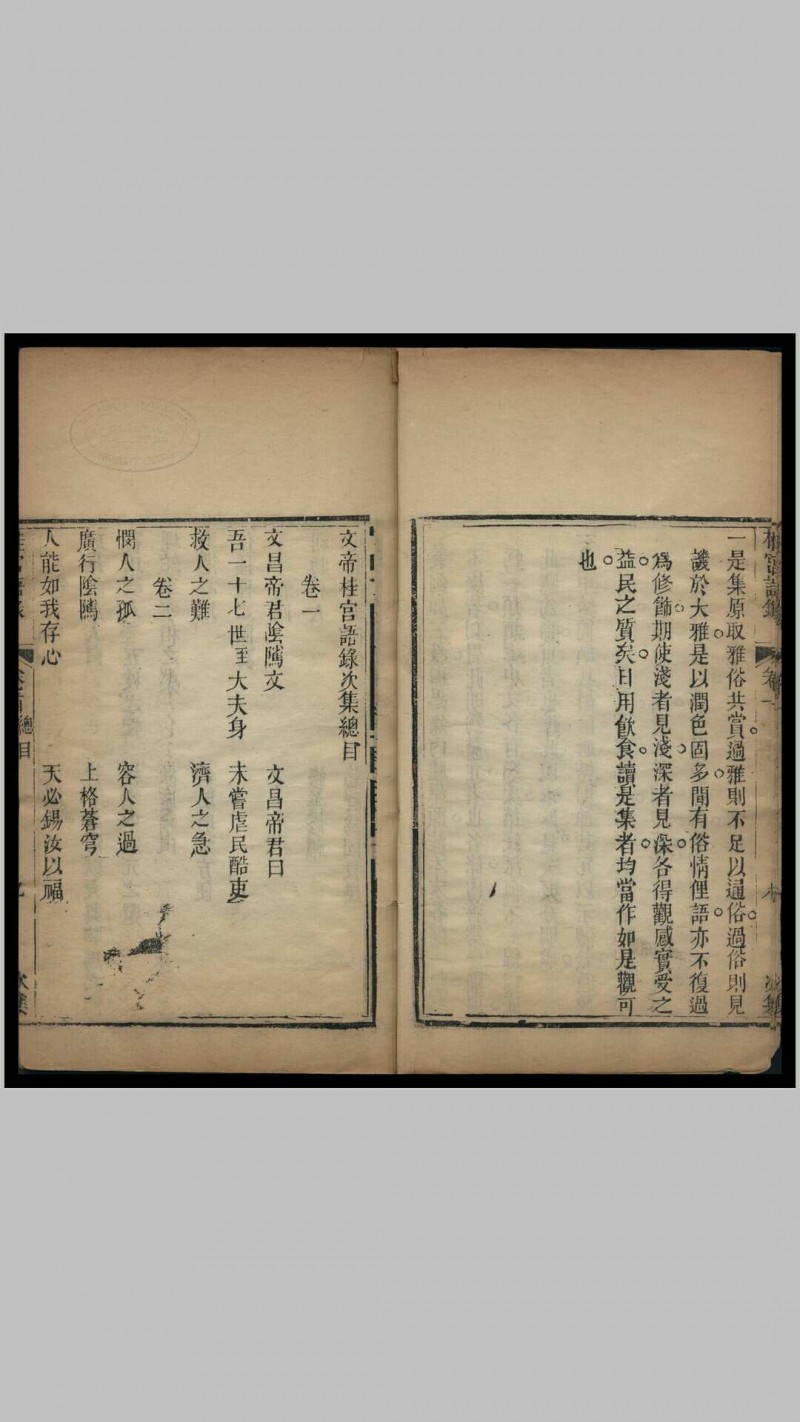 桂宮語錄
卷一
次集
一是集原取雅俗共賞過雅則不足以通俗過俗則見
譏於大雅是以潤色固多間有俗情俚語亦不復過
爲修飾期使淺者見淺深者見深各得觀感實受之
益民之質矣日用飲食讀是集者均當作如是觀可
也
文帝桂宮語錄次集總目
卷一
文昌帝君陰隲文 文昌帝君曰
吾一十七世爲士大夫身 未嘗虐民酷吏
救人之難 濟人之急
卷二
憫人之孤 容人之過
廣行陰隲 上格蒼穹
人能如我存心 天必錫汝以福
桂宮語錄
總目
次集